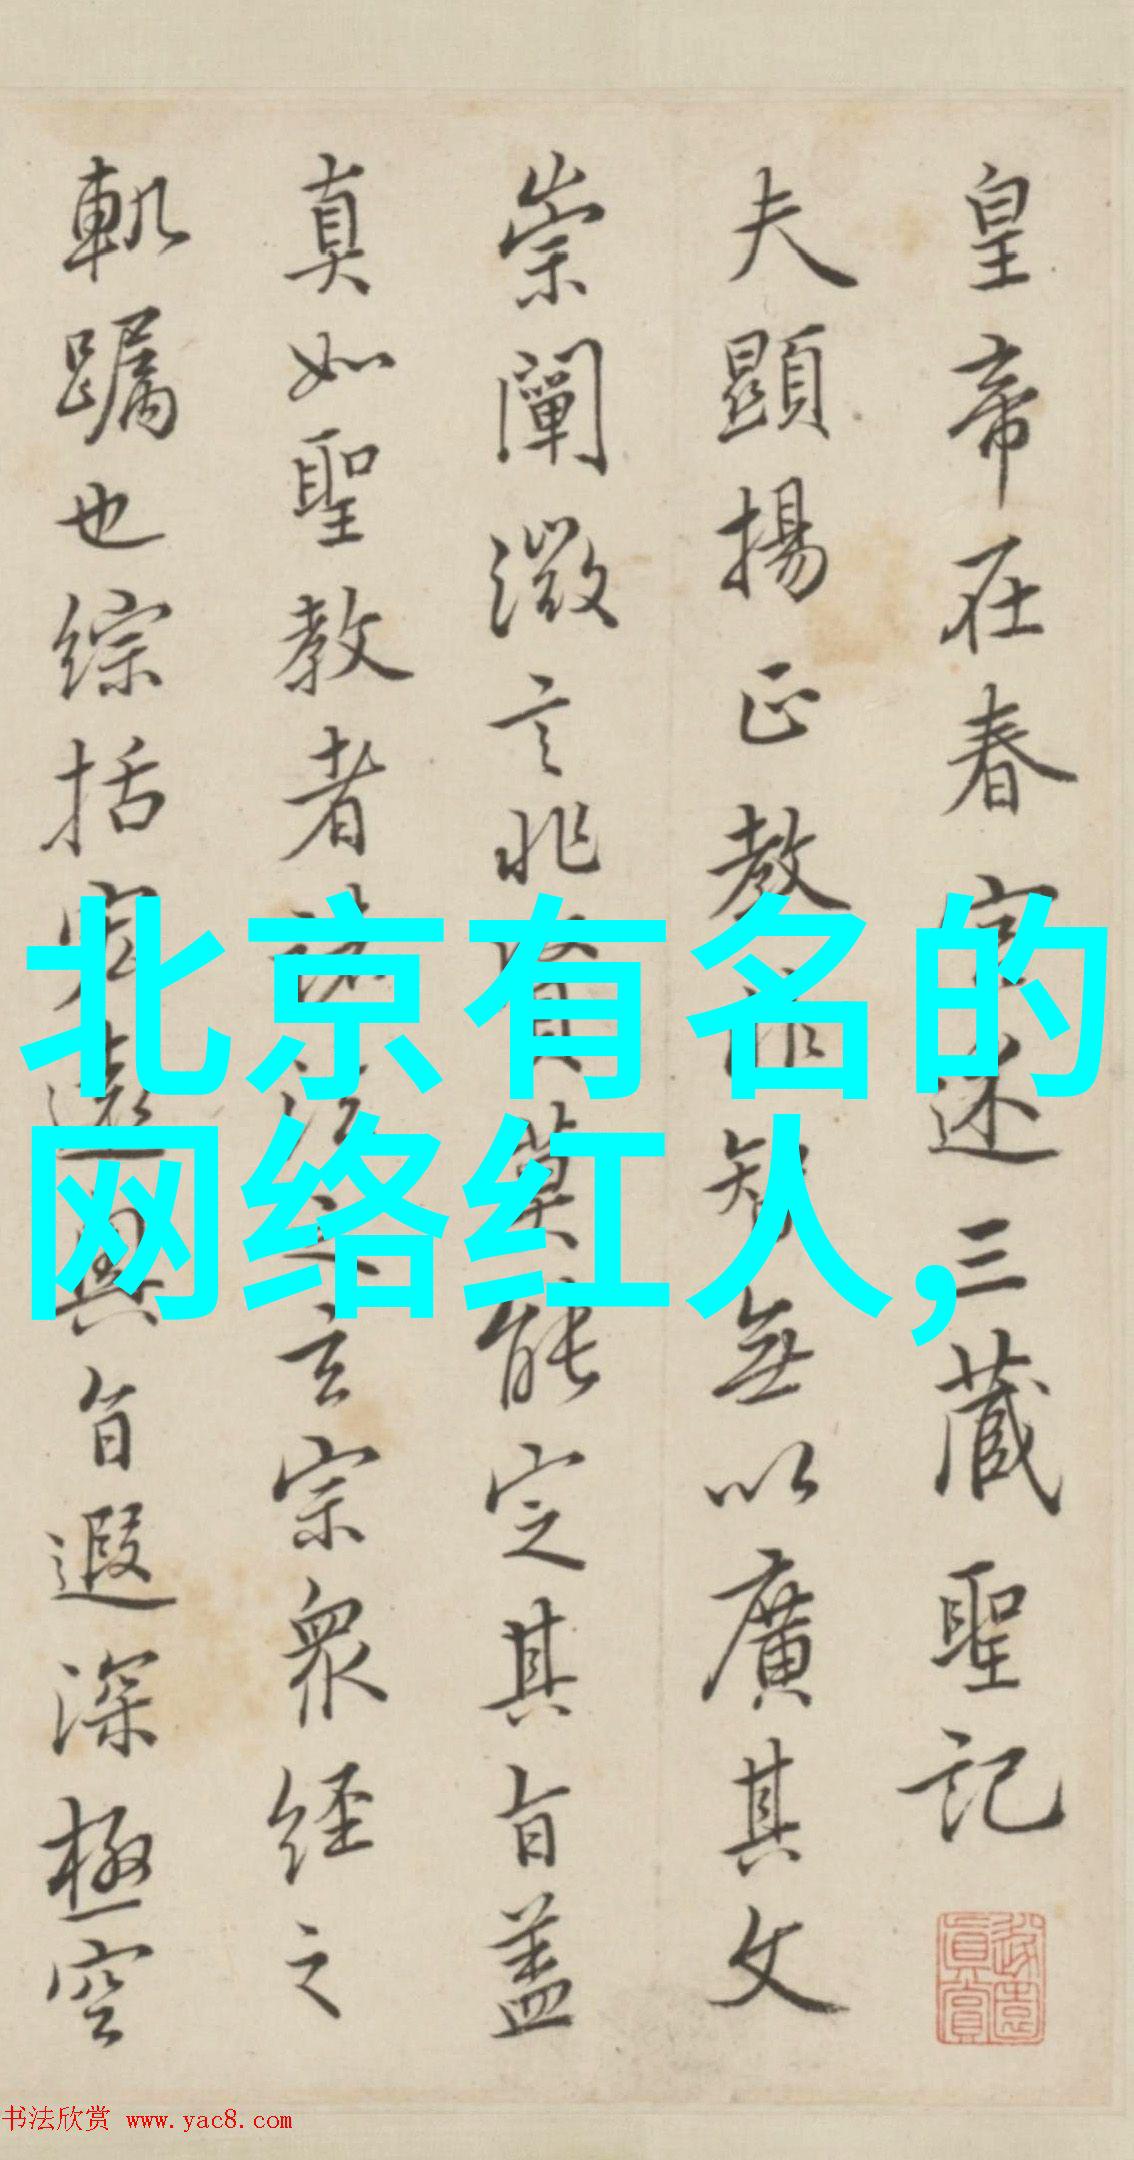 皇帝在春宮述三藏聖記
夫顯揚正教非智無以廣其文
崇闡微言非賢莫能定其旨蓋
真如聖教者諸法之玄宗衆經之
軌躅也綜括宏遠奧旨遐深極空
北京有名的
网络红人,
书法欣赏 www.yac8.com